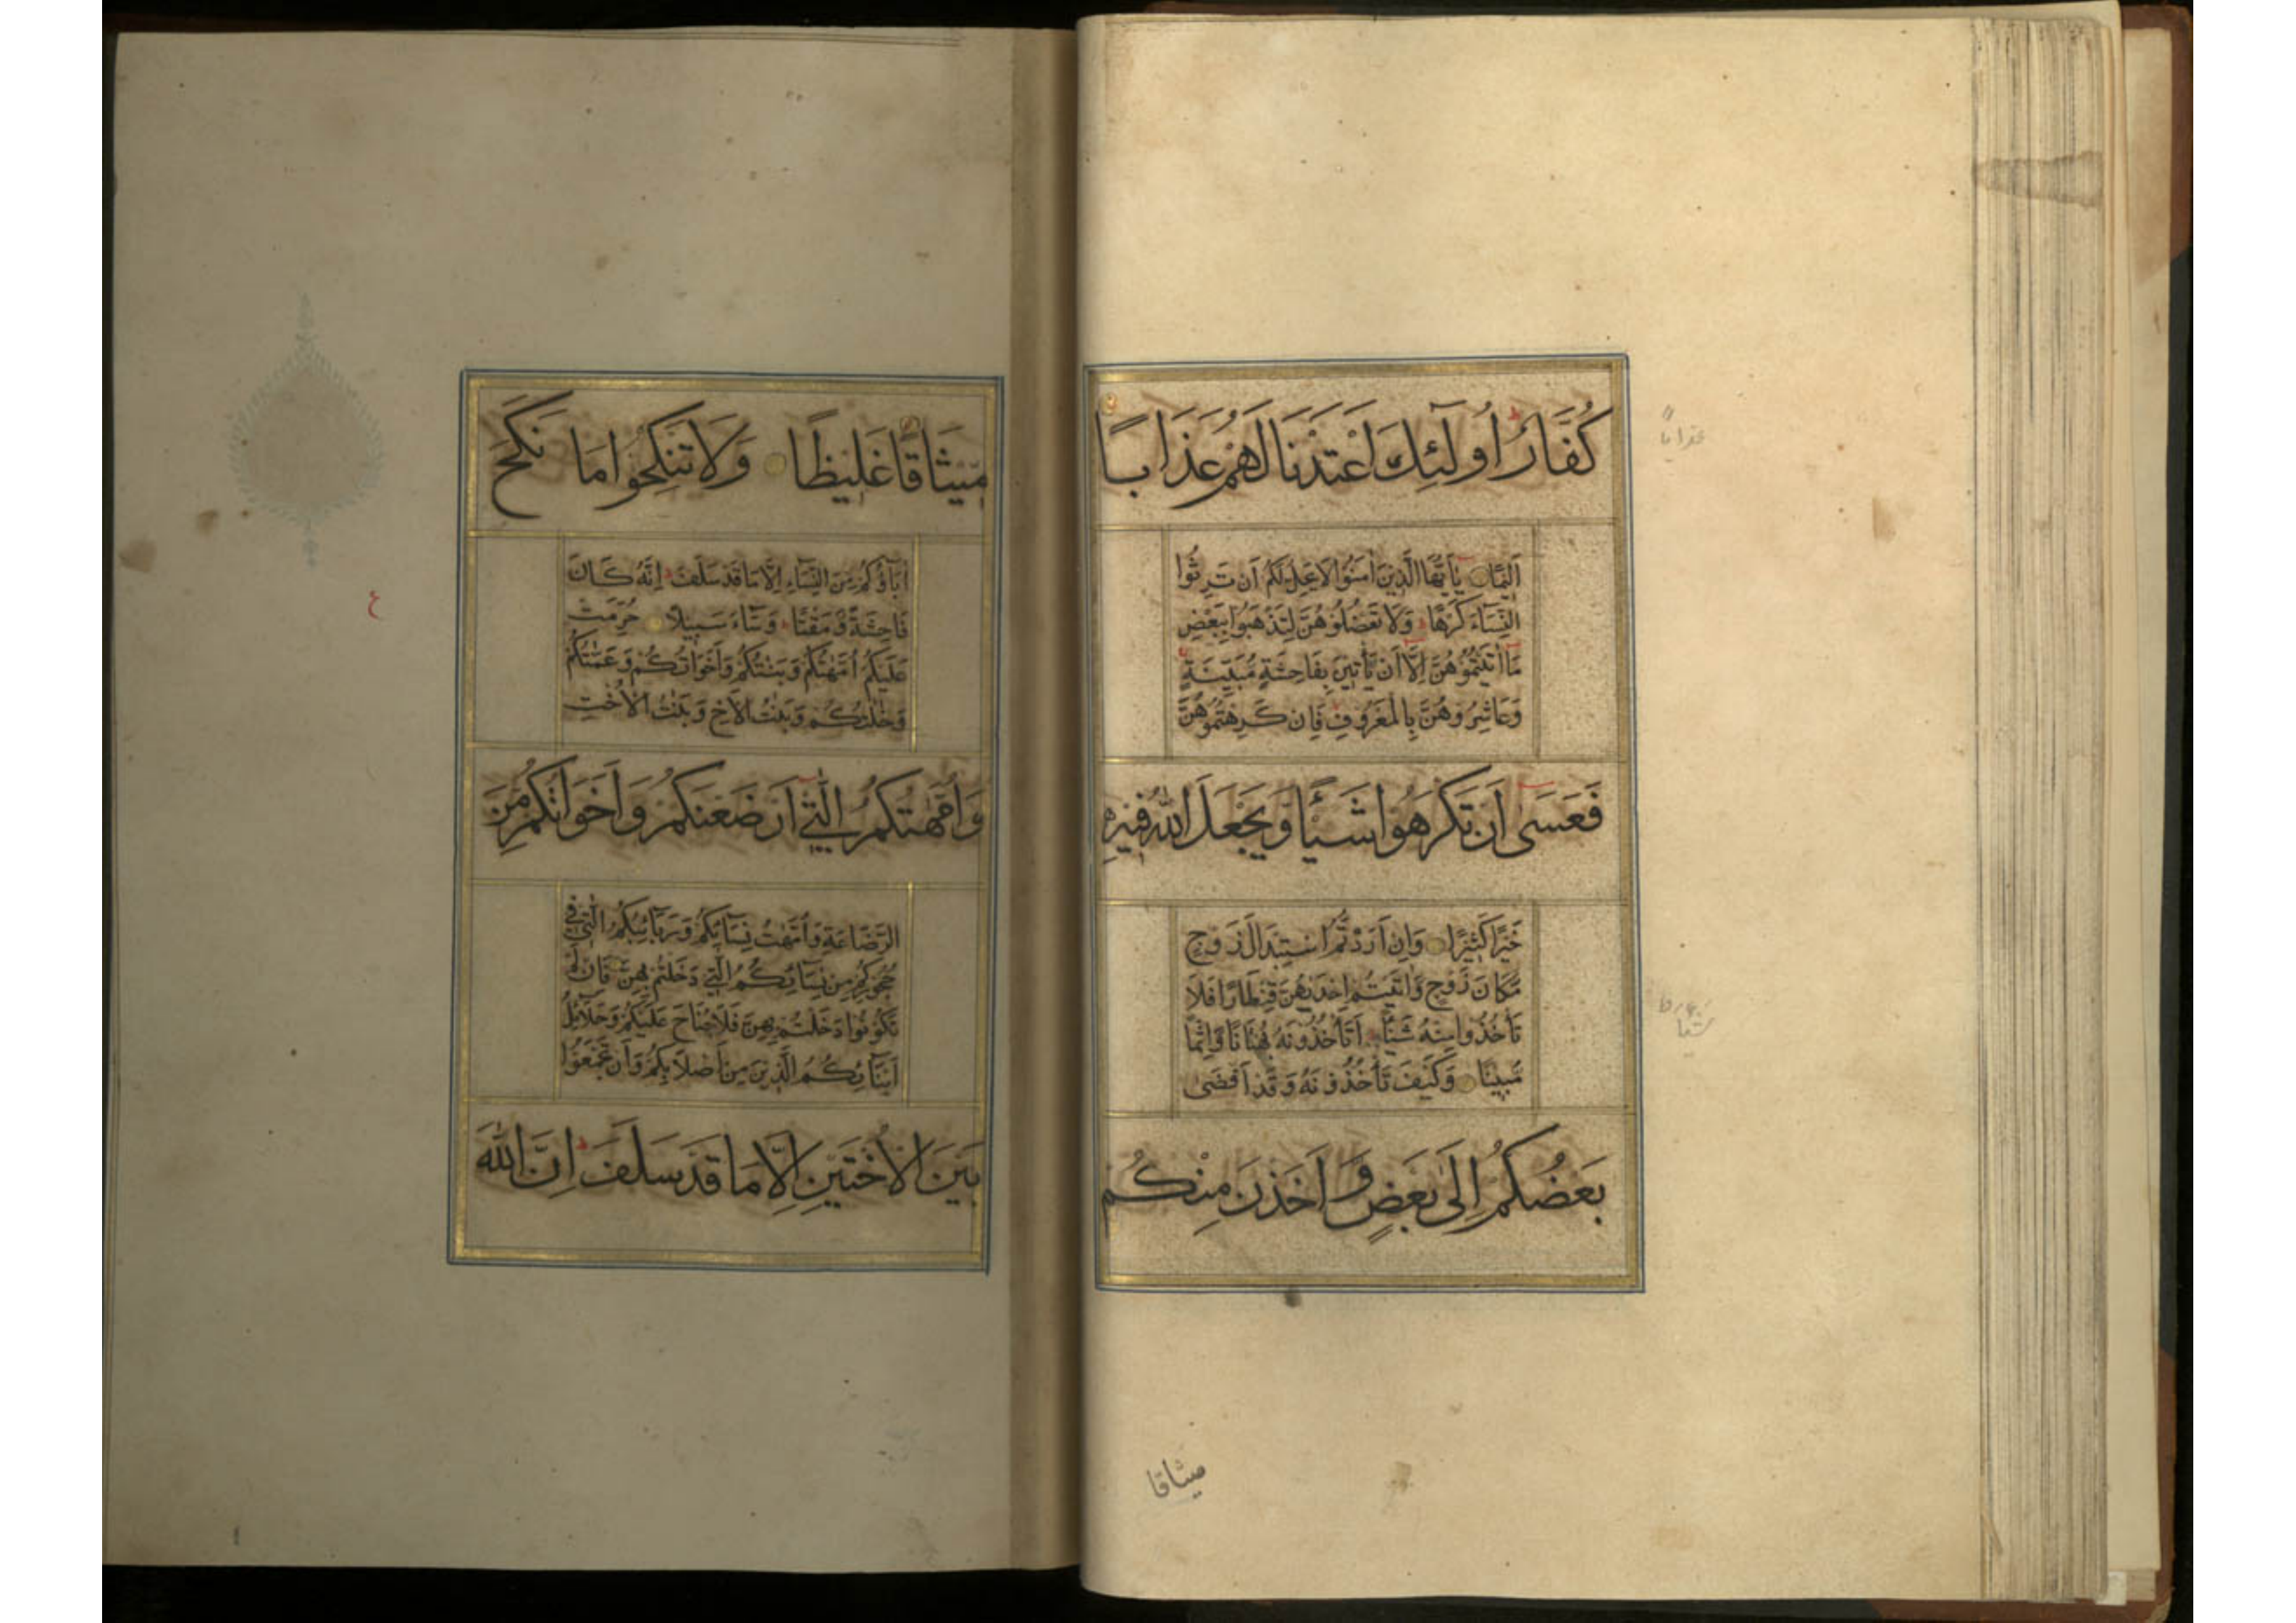 كُفَّارٌ اُولٰٓئِكَ اَعْتَدْنَا لَهُمْ عَذَابًا
اَلِيْمًا يٰٓاَيُّهَا الَّذِيْنَ اٰمَنُوْا لَا يَحِلُّ لَكُمْ اَنْ تَرِثُوا
النِّسَآءَ كَرْهًا ط وَلَا تَعْضُلُوْهُنَّ لِتَذْهَبُوْا بِبَعْضِ
مَآ اٰتَيْتُمُوْهُنَّ اِلَّآ اَنْ يَّأْتِيْنَ بِفَاحِشَةٍ مُّبَيِّنَةٍ
وَعَاشِرُوْهُنَّ بِالْمَعْرُوْفِ فَاِنْ كَرِهْتُمُوْهُنَّ
فَعَسٰٓى اَنْ تَكْرَهُوْا شَيْئًا وَّيَجْعَلَ اللّٰهُ فِيْهِ
خَيْرًا كَثِيْرًا وَاِنْ اَرَدْتُّمُ اسْتِبْدَالَ زَوْجٍ
مَّكَانَ زَوْجٍ وَّاٰتَيْتُمْ اِحْدٰىهُنَّ قِنْطَارًا فَلَا
تَأْخُذُوْا مِنْهُ شَيْئًا اَتَأْخُذُوْنَهُ بُهْتَانًا وَّاِثْمًا
مُّبِيْنًا وَكَيْفَ تَأْخُذُوْنَهُ وَقَدْ اَفْضٰى
بَعْضُكُمْ اِلٰى بَعْضٍ وَّاَخَذْنَ مِنْكُمْ
ميثاقا
عذابا
شيئا
مِّيْثَاقًا غَلِيْظًا وَلَا تَنْكِحُوْا مَا نَكَحَ
اٰبَآؤُكُمْ مِّنَ النِّسَآءِ اِلَّا مَا قَدْ سَلَفَ ط اِنَّهُ كَانَ
فَاحِشَةً وَّمَقْتًا ط وَسَآءَ سَبِيْلًا حُرِّمَتْ
عَلَيْكُمْ اُمَّهٰتُكُمْ وَبَنٰتُكُمْ وَاَخَوَاتُكُمْ وَعَمّٰتُكُمْ
وَخٰلٰتُكُمْ وَبَنٰتُ الْاَخِ وَبَنٰتُ الْاُخْتِ
وَاُمَّهٰتُكُمُ الّٰتِيْٓ اَرْضَعْنَكُمْ وَاَخَوَاتُكُمْ مِّنَ
الرَّضَاعَةِ وَاُمَّهٰتُ نِسَآئِكُمْ وَرَبَآئِبُكُمُ الّٰتِيْ فِيْ
حُجُوْرِكُمْ مِّنْ نِّسَآئِكُمُ الّٰتِيْ دَخَلْتُمْ بِهِنَّ فَاِنْ لَّمْ
تَكُوْنُوْا دَخَلْتُمْ بِهِنَّ فَلَا جُنَاحَ عَلَيْكُمْ وَحَلَآئِلُ
اَبْنَآئِكُمُ الَّذِيْنَ مِنْ اَصْلَابِكُمْ وَاَنْ تَجْمَعُوْا
بَيْنَ الْاُخْتَيْنِ اِلَّا مَا قَدْ سَلَفَ ط اِنَّ اللّٰهَ
ع